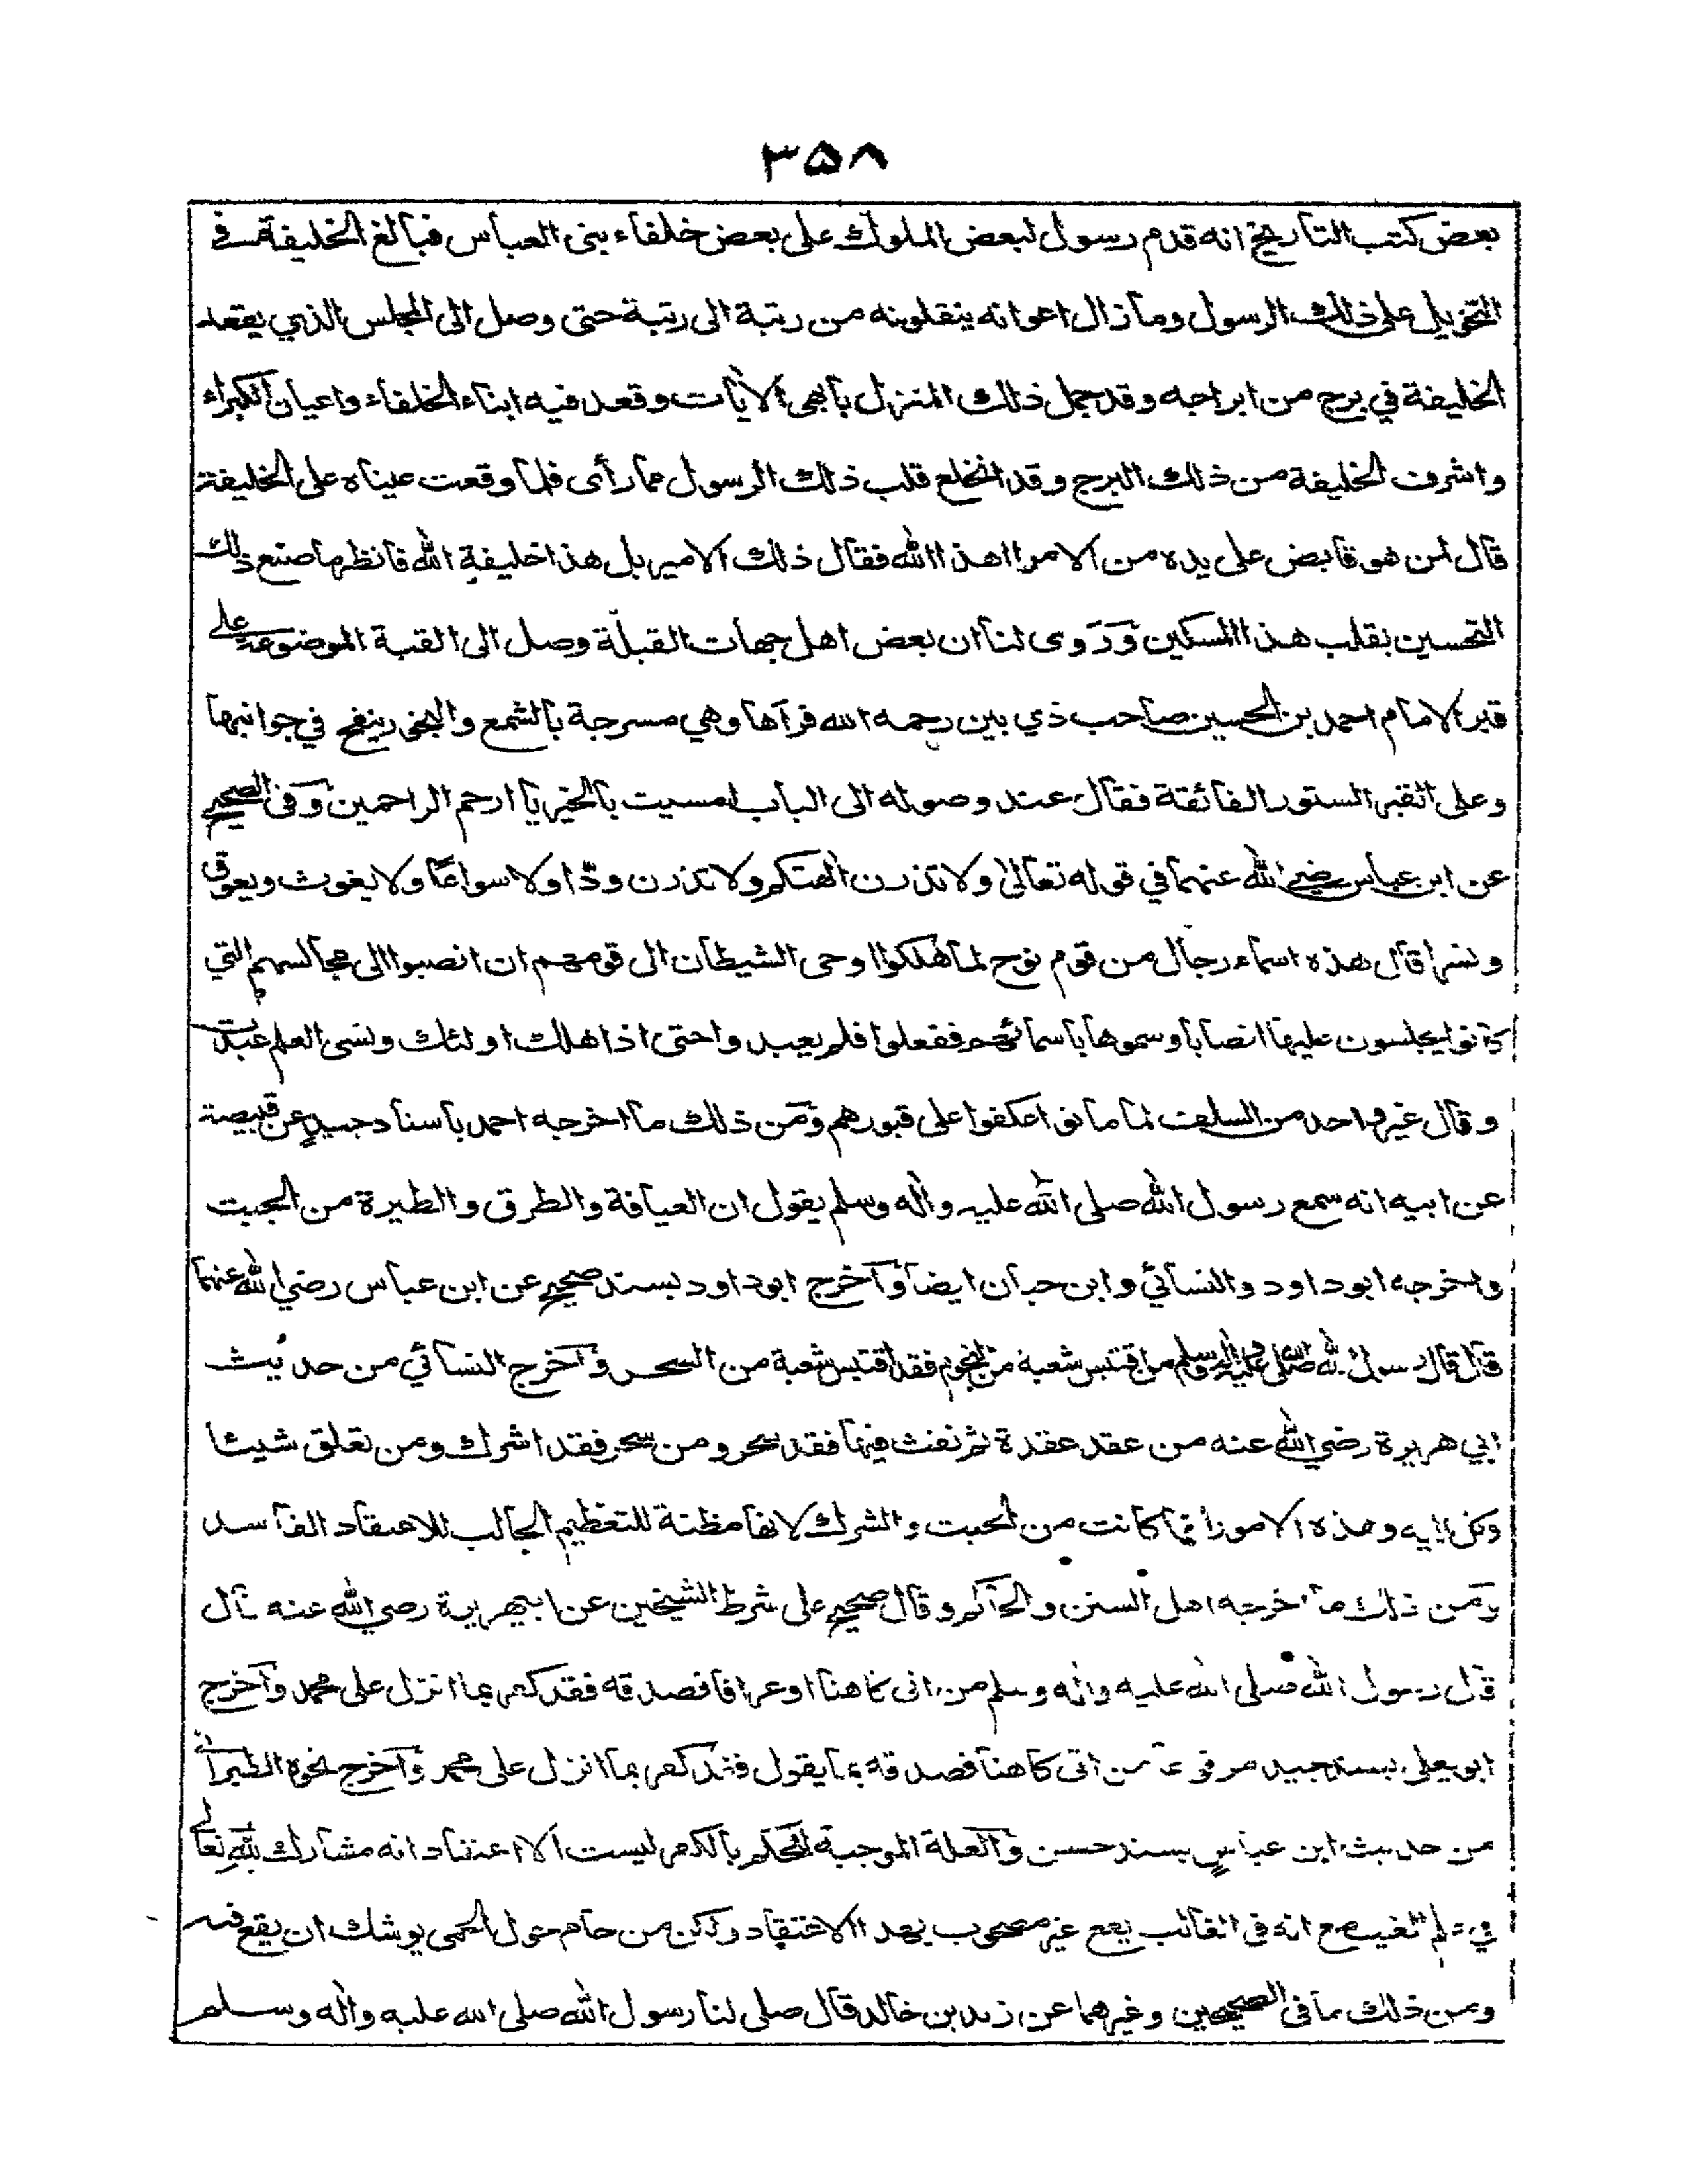 ٣٥٨
بعض كتب التاريخ انه قدم رسول لبعض الملوك على بعض خلفاء بنى العباس فبالغ الخليفة في
التهويل على ذلك الرسول وما زال اعوانه ينقلونه من رتبة الى رتبة حتى وصل الى المجلس الذي يقعد
الخليفة في برج من ابراجه وقد جمل ذلك المنزل بابهى الآيات وقعد فيه ابناء الخلفاء واعيان الكبراء
واشرف الخليفة من ذلك البرج وقد انخلع قلب ذلك الرسول مما رأى فلما وقعت عيناه على الخليفة
قال لمن هو قابض على يده من الامراء اهذا الله فقال ذلك الامير بل هذا خليفة الله فانظر ما صنع ذلك
التحسين بقلب هذا المسكين وروى لنا ان بعض اهل جهات القبلة وصل الى القبة الموضوعة على
قبر الامام احمد بن الحسين صاحب ذي بين رحمه الله فرآها وهي مسرجة بالشمع والبخور ينفح في جوانبها
وعلى القبر الستور الفائقة فقال عند وصوله الى الباب امسيت بالخير يا ارحم الراحمين وفى الصحيح
عن ابن عباس رضي الله عنهما في قوله تعالى ولا تذرن الهتكم ولا تذرن ودّا ولا سواعًا ولا يغوث ويعوق
ونسرا قال هذه اسماء رجال من قوم نوح لما هلكوا اوحى الشيطان الى قومهم ان انصبوا الى مجالسهم التي
كانوا يجلسون عليها انصابا وسموها باسمائهم ففعلوا فلم يعبدوا حتى اذا هلك اولئك ونسى العلم عبدت
وقال غير واحد من السلف لما ماتوا عكفوا على قبورهم ومن ذلك ما اخرجه احمد باسناد جيد عن قبيصة
عن ابيه انه سمع رسول الله صلى الله عليه وآله وسلم يقول ان العيافة والطرق والطيرة من الجبت
واخرجه ابو داود والنسائي وابن حبان ايضا وآخرج ابو داود بسند صحيح عن ابن عباس رضي الله عنهما
قال قال رسول الله صلى الله عليه وآله وسلم من اقتبس شعبة من النجوم فقد اقتبس شعبة من السحر وآخرج النسائي من حديث
ابي هريرة رضي الله عنه من عقد عقدة ثم نفث فيها فقد سحر ومن سحر فقد اشرك ومن تعلق شيئا
وكل اليه وهذه الامور انما كانت من الجبت والشرك لانها مظنة للتعظيم الجالب للاعتقاد الفاسد
ومن ذلك ما اخرجه اهل السنن والحاكم وقال صحيح على شرط الشيخين عن ابي هريرة رضي الله عنه قال
قال رسول الله صلى الله عليه وآله وسلم من اتى كاهنا او عرافا فصدقه فقد كفر بما انزل على محمد وآخرج
ابو يعلى بسند جيد مرفوعا من اتى كاهنا فصدقه بما يقول فقد كفر بما انزل على محمد وآخرج نحوه الطبراني
من حديث ابن عباس بسند حسن والعلة الموجبة للحكم بالكفر ليست الا اعتقاد انه مشارك لله تعالى
في علم الغيب مع انه فى الغالب يقع غير مصحوب بهذا الاعتقاد ولكن من حام حول الحمى يوشك ان يقع فيه
ومن ذلك ما فى الصحيحين وغيرهما عن زيد بن خالد قال صلى لنا رسول الله صلى الله عليه وآله وسلم